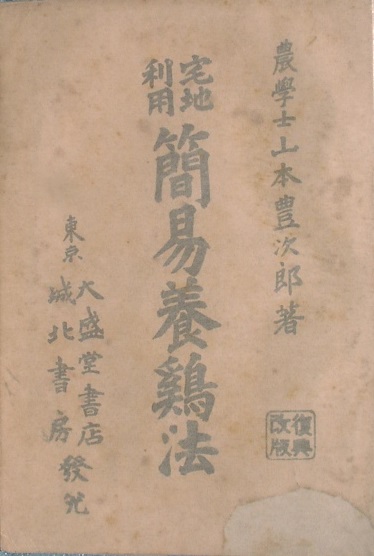 農學士山本豊次郎著
宅地
利用
簡易養鷄法
復興
改版
東京
大盛堂書店
城北書房
發兌